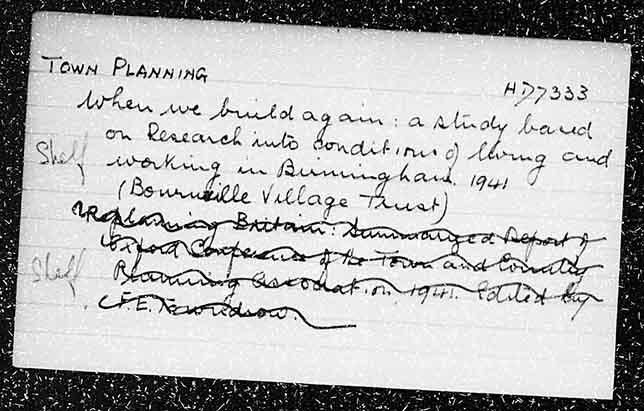 TOWN PLANNING
HD7333
When we build again: a study based
on Research into conditions of living and
Shelf
working in Birmingham. 1941
(Bournville Village Trust)
Replanning Britain: Summarized Report of
Oxford Conference of the Town and Country
Shelf
Planning Association, 1941. Edited by
F.E. Towndrow.